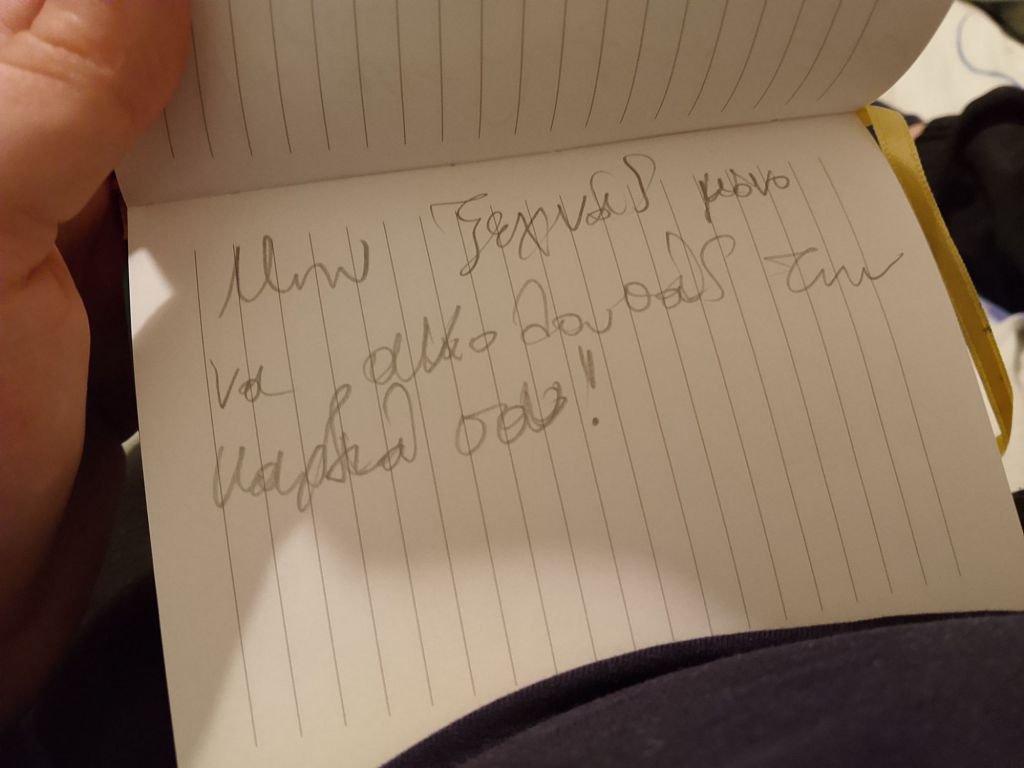 Μην ξεχνάς μόνο
να ακολουθάς την
καρδιά σου!